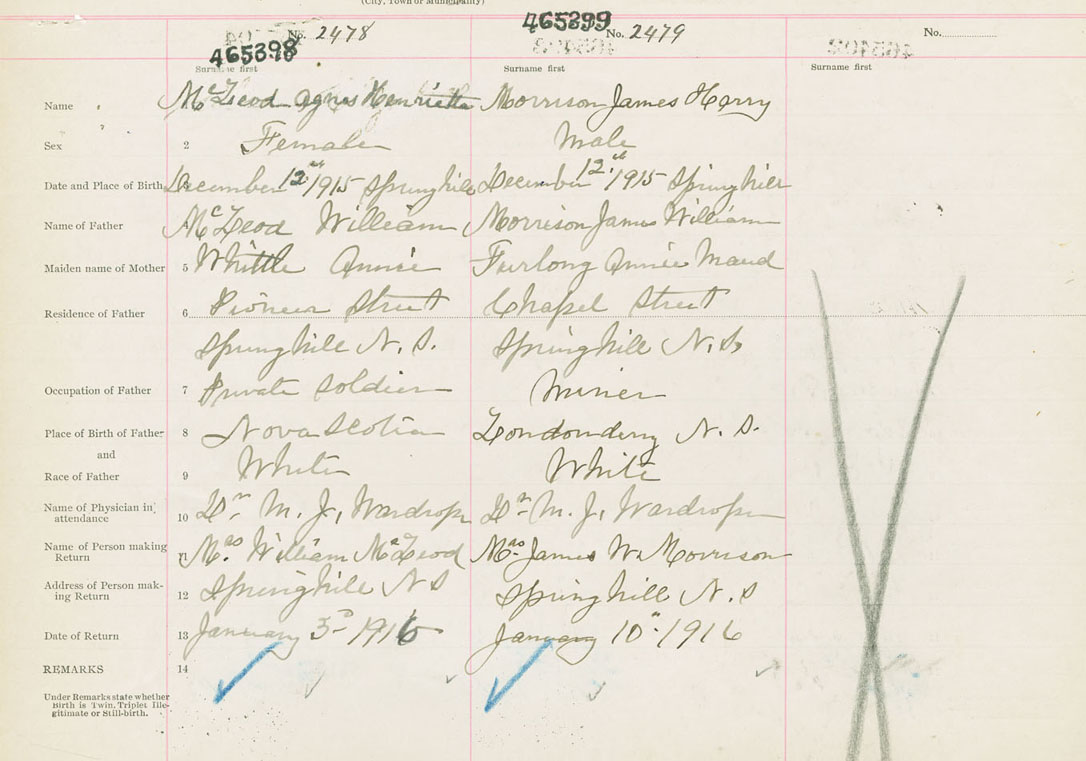 (City, Town or Municipality)
465398 No. 2478 465399 No. 2479 No.
Surname first Surname first Surname first
Name McLeod Agnes Henrietta Morrison James Harry
Sex 2 Female Male
Date and Place of Birth December 12th 1915 Springhill December 12th 1915 Springhill
Name of Father McLeod William Morrison James William
Maiden name of Mother 5 Whittle Annie Furlong Annie Maud
Residence of Father 6 Pioneer Street Chapel Street
Springhill N.S. Springhill N.S.
Occupation of Father 7 Private Soldier Miner
Place of Birth of Father 8 Nova Scotia Londonderry N.S.
and
Race of Father 9 White White
Name of Physician in attendance 10 Dr. M. J. Wardrope Dr. M. J. Wardrope
Name of Person making Return 11 Mrs. William McLeod Mrs. James W. Morrison
Address of Person mak-
ing Return 12 Springhill N S Springhill N.S
Date of Return 13 January 3rd 1916 January 10th 1916
REMARKS 14
Under Remarks state whether
Birth is Twin, Triplet Ille-
gitimate or Still-birth.